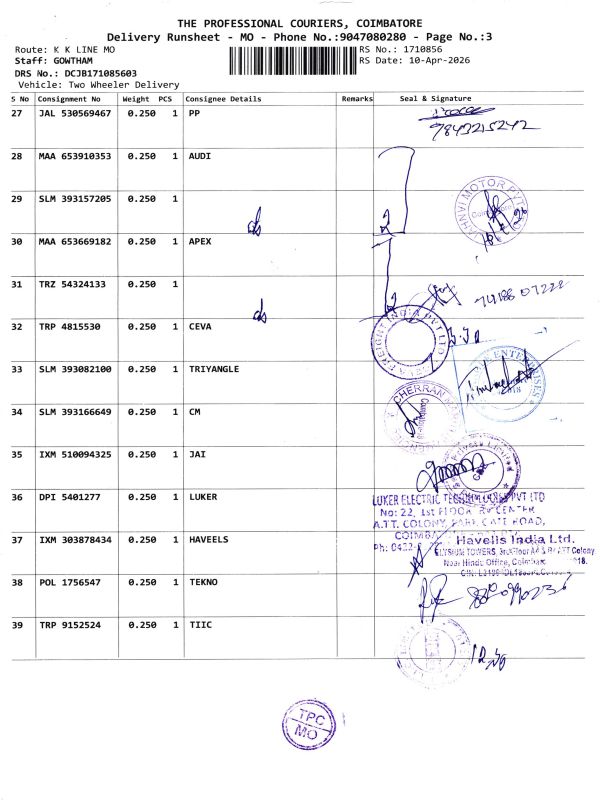 THE PROFESSIONAL COURIERS, COIMBATORE
Delivery Runsheet - MO - Phone No.:9047080280 - Page No.:3
Route: K K LINE MO
RS No.: 1710856
Staff: GOWTHAM
RS Date: 10-Apr-2026
DRS No.: DCJB171085603
Vehicle: Two Wheeler Delivery
S No Consignment No Weight PCS Consignee Details Remarks Seal & Signature
27 JAL 530569467 0.250 1 PP
7843215242
28 MAA 653910353 0.250 1 AUDI
29 SLM 393157205 0.250 1
ds
30 MAA 653669182 0.250 1 APEX
31 TRZ 54324133 0.250 1
ds
32 TRP 4815530 0.250 1 CEVA
33 SLM 393082100 0.250 1 TRIYANGLE
34 SLM 393166649 0.250 1 CM
35 IXM 510094325 0.250 1 JAI
36 DPI 5401277 0.250 1 LUKER
LUKER ELECTRIC TECHNOLOGIES PVT LTD
No: 22, 1st FLOOR, RV CENTER
A.T.T. COLONY, PARK GATE ROAD,
37 IXM 303878434 0.250 1 HAVEELS
Havells India Ltd.
ELYSIUM TOWERS,
Near Hindu Office,
38 POL 1756547 0.250 1 TEKNO
39 TRP 9152524 0.250 1 TIIC
12.30
TPC
MO